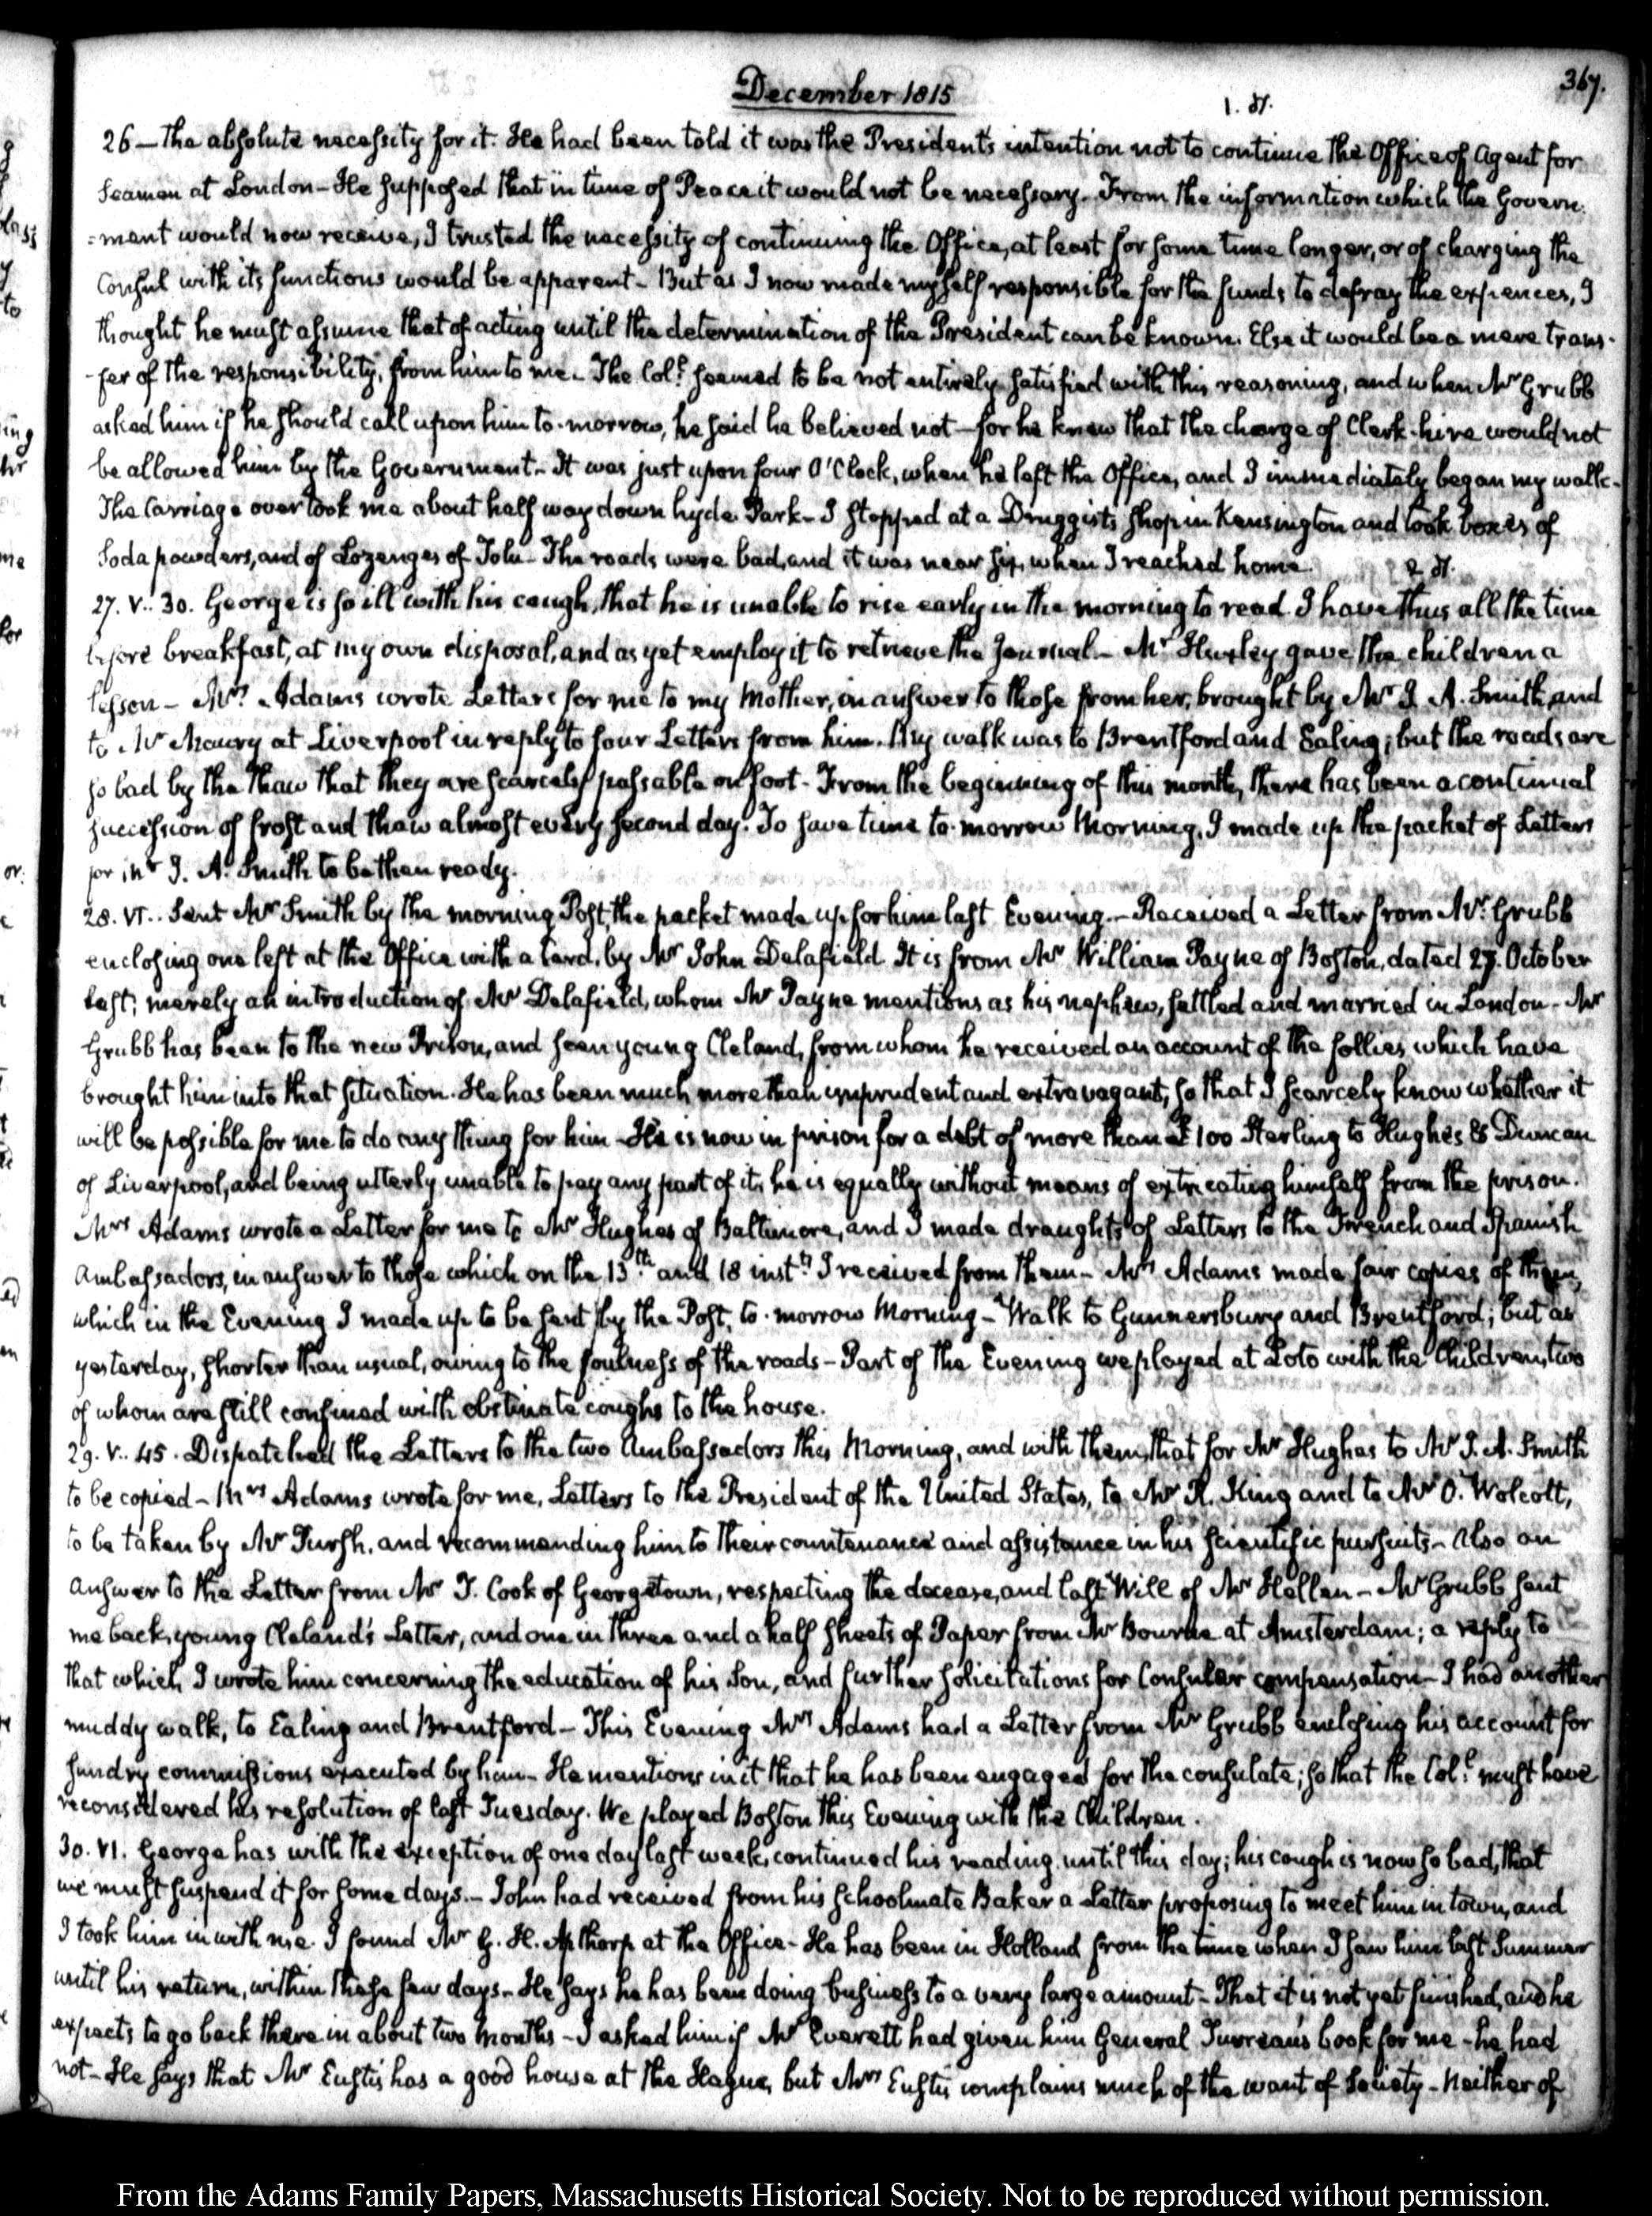 December 1815
367.
1. st.
26 — the absolute necessity for it. He had been told it was the President's intention not to continue the Office of Agent for
Seamen at London — He supposed that in time of Peace it would not be necessary. From the information which the Govern-
=ment would now receive, I trusted the necessity of continuing the Office, at least for some time longer, or of charging the
Consul with its functions would be apparent — But as I now made myself responsible for the funds to defray the expences, I
thought he must assume that of acting until the determination of the President can be known. Else it would be a mere trans-
-fer of the responsibility, from him to me. The Coll. seemed to be not entirely satisfied with this reasoning, and when Mr Grubb
asked him if he should call upon him to-morrow, he said he believed not — for he knew that the charge of Clerk-hire would not
be allowed him by the Government — It was just upon four O'Clock, when he left the Office, and I immediately began my walk —
The Carriage overtook me about half way down hyde Park — I stopped at a Druggist's shop in Kensington and took boxes of
Soda powders, and of Lozenges of Tolu — The roads were bad, and it was near six, when I reached home.
2 st.
27. V:30. George is so ill with his cough, that he is unable to rise early in the morning to read. I have thus all the time
before breakfast, at my own disposal, and as yet employ it to retrieve the Journal — Mr Huxley gave the children a
lesson — Mrs Adams wrote Letters for me to my Mother, in answer to those from her, brought by Mr J. A. Smith, and
to Mr Maury at Liverpool in reply to four Letters from him. My walk was to Brentford and Ealing; but the roads are
so bad by the thaw that they are scarcely passable on foot — From the beginning of this month, there has been a continual
succession of frost and thaw almost every second day. To save time to-morrow Morning, I made up the packet of Letters
for Mr J. A. Smith to be then ready.
28. VI.. Sent Mr Smith by the morning Post, the packet made up for him last Evening. — Received a Letter from Mr Grubb
enclosing one left at the Office with a Card, by Mr John Delafield. It is from Mr William Payne of Boston, dated 27. October
last; merely an introduction of Mr Delafield, whom Mr Payne mentions as his nephew, settled and married in London — Mr
Grubb has been to the new Prison, and seen young Cleland, from whom he received an account of the follies which have
brought him into that situation. He has been much more than imprudent and extravagant, so that I scarcely know whether it
will be possible for me to do any thing for him — He is now in prison for a debt of more than £100 Sterling to Hughes & Duncan
of Liverpool, and being utterly unable to pay any part of it, he is equally without means of extricating himself from the prison.
Mrs Adams wrote a Letter for me to Mr Hughes of Baltimore, and I made draughts of Letters to the French and Spanish
Ambassadors, in answer to those which on the 13th and 18 instt I received from them — Mrs Adams made fair copies of them,
which in the Evening I made up to be sent by the Post, to-morrow Morning — Walk to Gunnersbury and Brentford; but as
yesterday, shorter than usual, owing to the foulness of the roads — Part of the Evening we played at Loto with the Children, two
of whom are still confined with obstinate coughs to the house.
29. V:45. Dispatched the Letters to the two Ambassadors this Morning, and with them, that for Mr Hughes to Mr J. A. Smith
to be copied — Mrs Adams wrote for me, Letters to the President of the United States, to Mr R. King and to Mr O. Wolcott,
to be taken by Mr Pursh, and recommending him to their countenance and assistance in his scientific pursuits — Also an
answer to the Letter from Mr T. Cook of Georgetown, respecting the decease, and last Will of Mr Hellen — Mr Grubb sent
me back, young Cleland's Letter, and one in three and a half sheets of Paper from Mr Bourne at Amsterdam; a reply to
that which I wrote him concerning the education of his Son, and further solicitations for Consular compensation — I had another
muddy walk, to Ealing and Brentford — This Evening Mrs Adams had a Letter from Mr Grubb enclosing his account for
sundry commissions executed by him — He mentions in it that he has been engaged for the consulate; so that the Coll. must have
reconsidered his resolution of last Tuesday. We played Boston this Evening with the Children.
30. VI. George has with the exception of one day last week, continued his reading until this day; his cough is now so bad, that
we must suspend it for some days. — John had received from his schoolmate Baker a Letter proposing to meet him in town, and
I took him in with me. I found Mr G. H. Apthorp at the Office — He has been in Holland from the time when I saw him last Summer
until his return, within these few days — He says he has been doing business to a very large amount — That it is not yet finished, and he
expects to go back there in about two months — I asked him if Mr Everett had given him General Turreau's book for me — he had
not — He says that Mr Eustis has a good house at the Hague, but Mrs Eustis complains much of the want of Society — Neither of
From the Adams Family Papers, Massachusetts Historical Society. Not to be reproduced without permission.